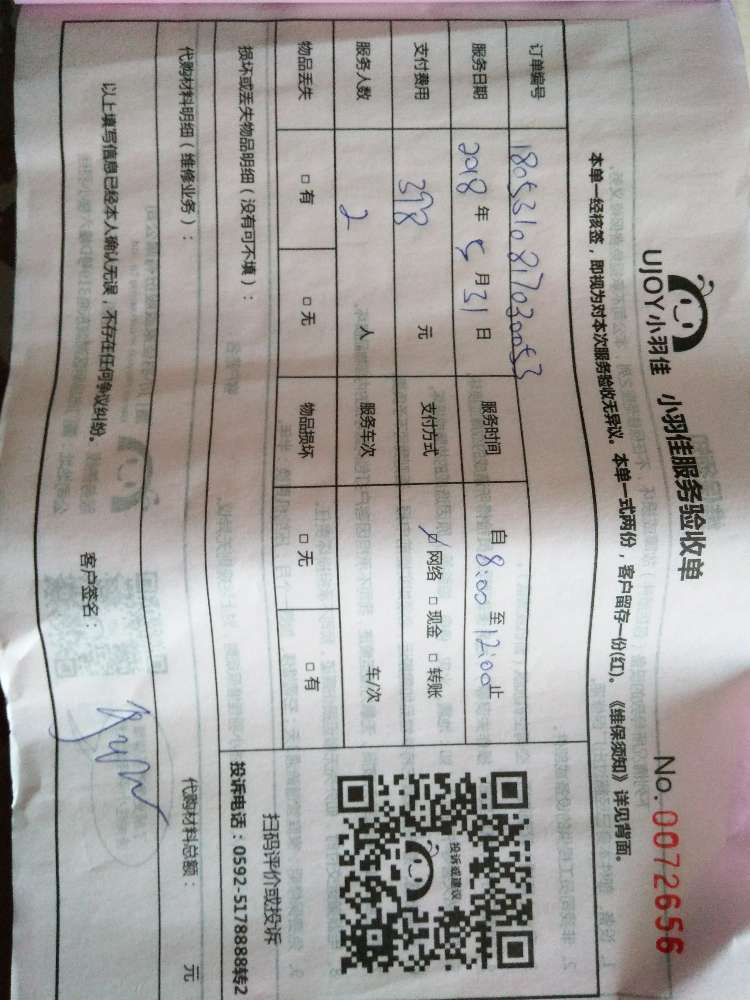 UJOY小羽佳 小羽佳服务验收单 No. 0072656
本单一经核签，即视为对本次服务验收无异议。本单一式两份，客户留存一份(红)。《维保须知》详见背面。
订单编号 180531081703053
服务日期 2018 年 5 月 31 日 服务时间 自 8:00 至 12:00 止
支付费用 398 元 支付方式 ☑ 网络 □ 现金 □ 转账
服务人数 2 人 服务车次 车/次
物品丢失 □ 有 □ 无 物品损坏 □ 无 □ 有
投诉或建议
扫码评价或投诉
投诉电话：0592-5178888转2
损坏或丢失物品明细（没有可不填）：
代购材料明细（维修业务）： 代购材料总额： 元
以上填写信息已经本人确认无误，不存在任何争议纠纷。 客户签名：